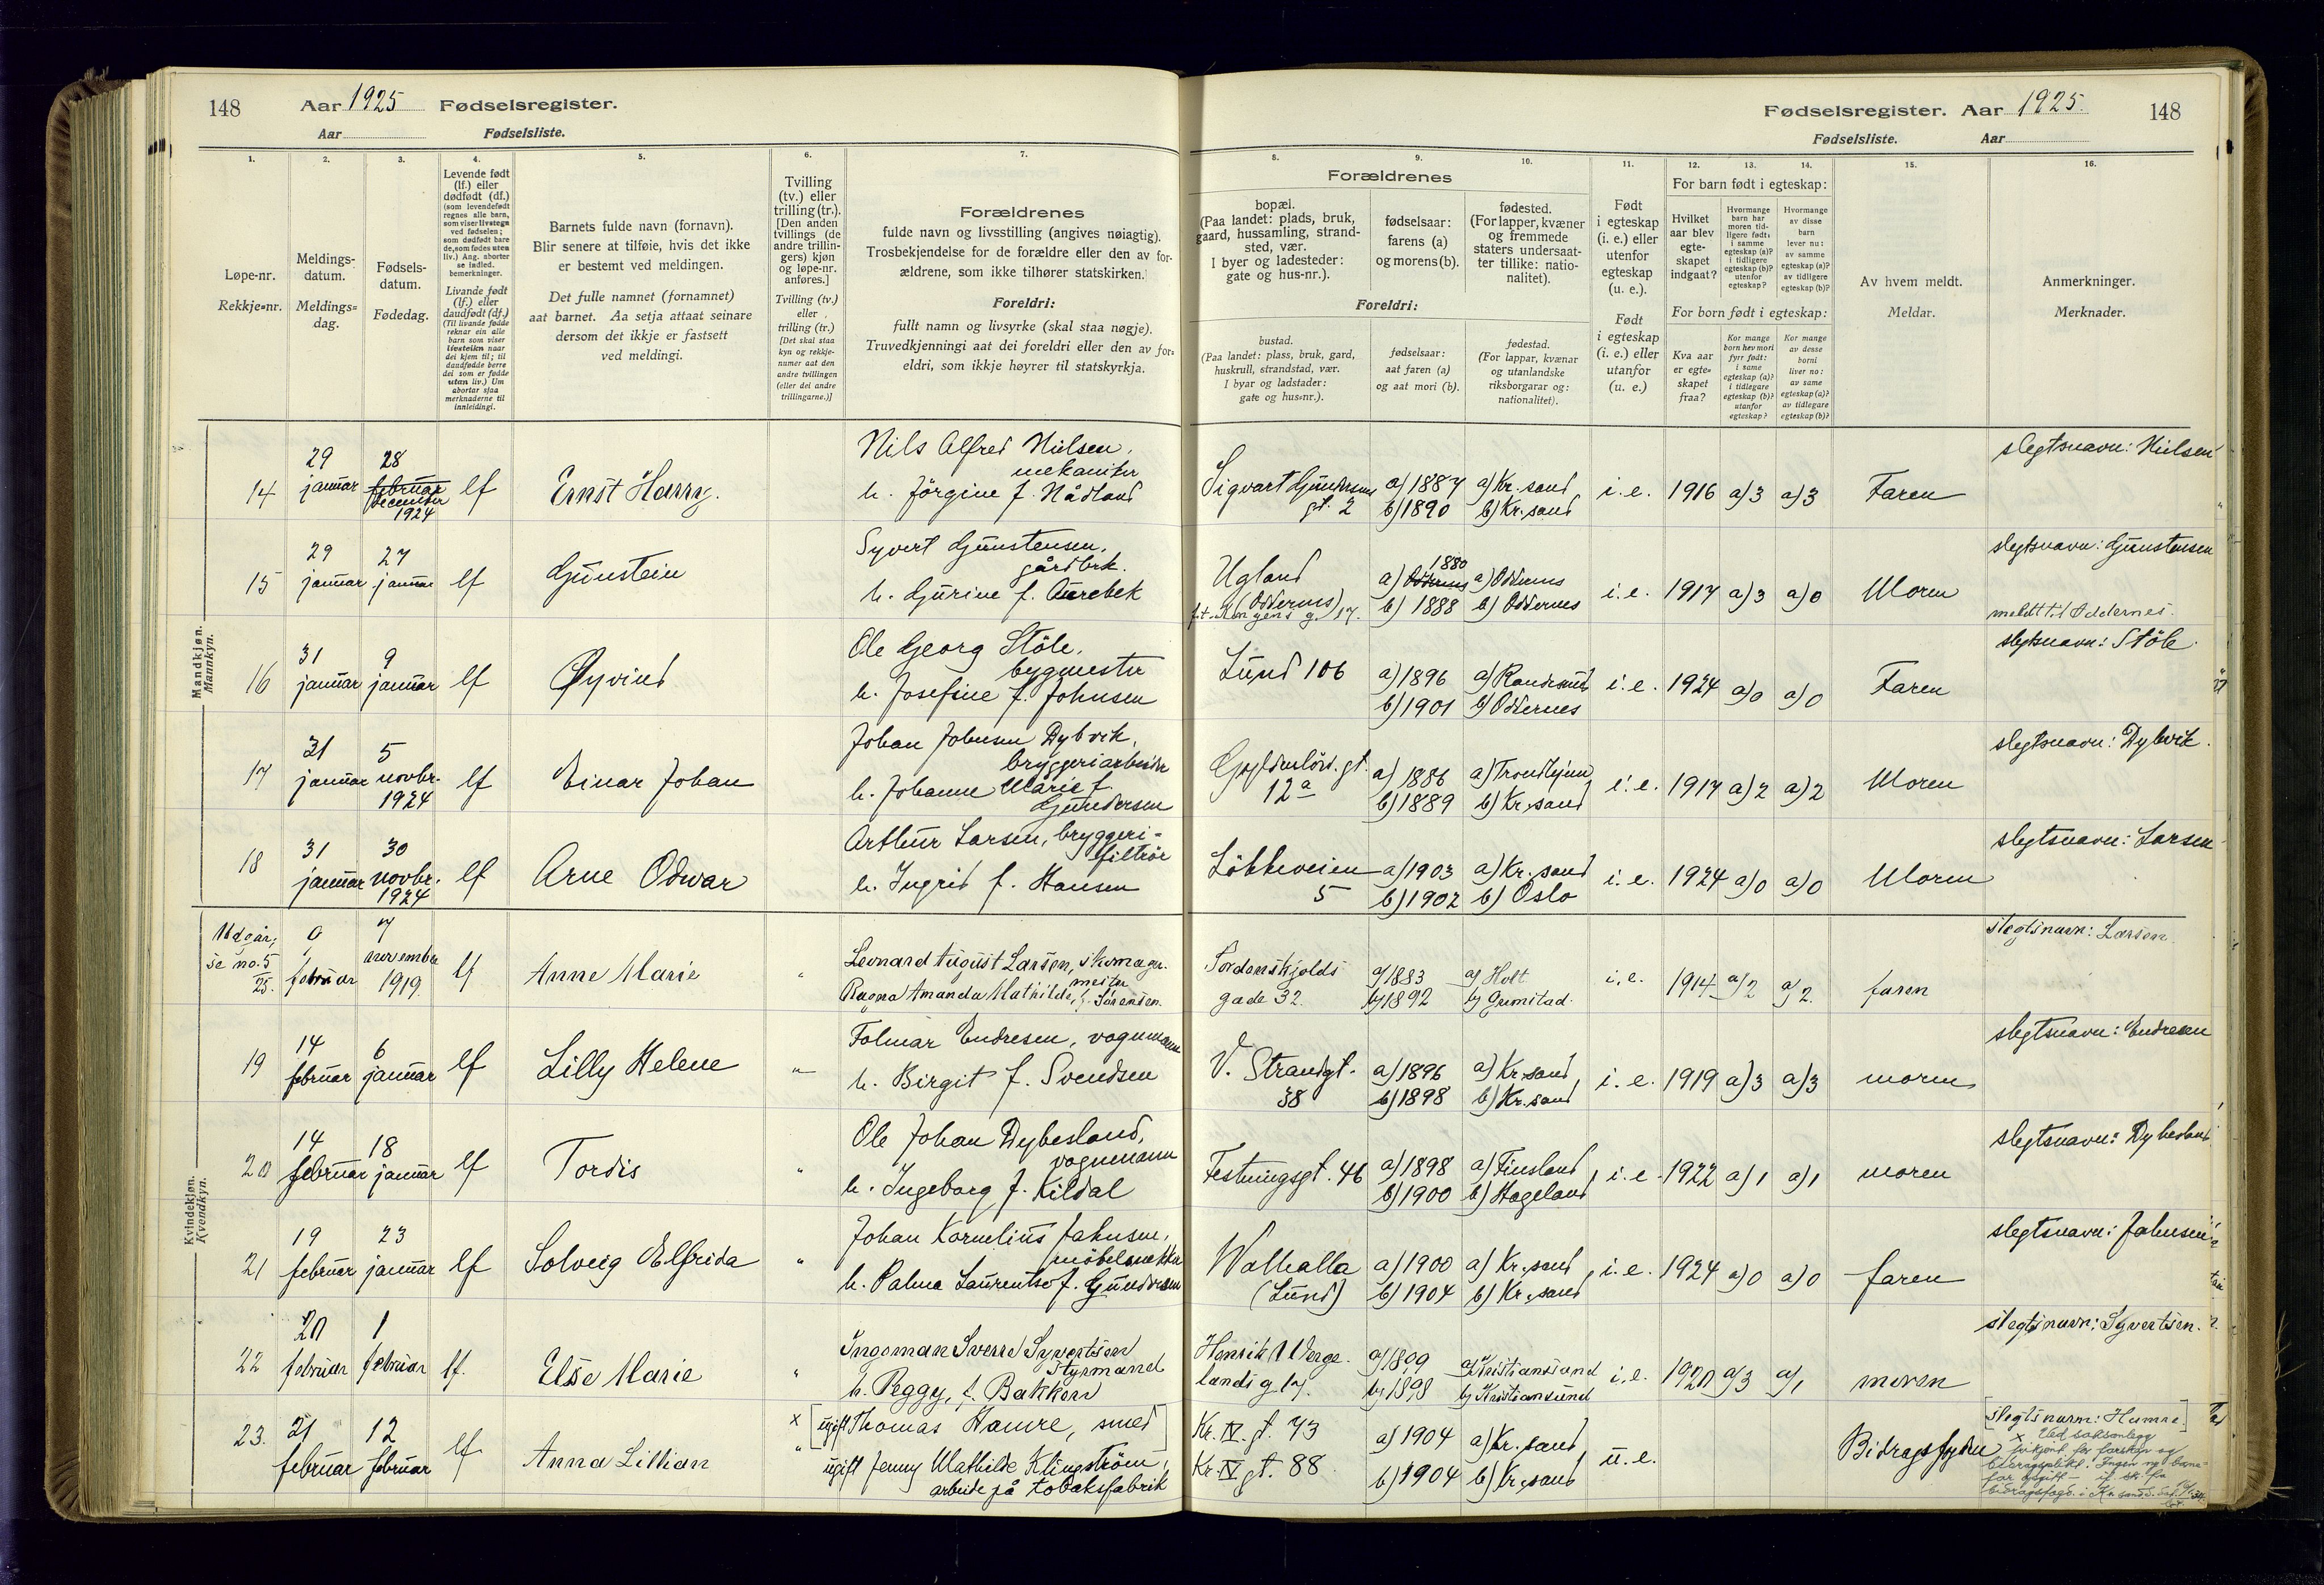 148 Aar 1925 Fødselsregister.
Aar Fødselsliste.
Fødselsregister. Aar 1925. 148
Fødselsliste. Aar
1. 2. 3. 4. 5. 6. 7. 8. 9. 10. 11. 12. 13. 14. 15. 16.
Løpe-nr.
Rekkje-nr.
Meldings-
datum.
Meldings-
dag.
Fødsels-
datum.
Fødedag.
Levende født
(lf.) eller
dødfødt (df.)
(som levendefødt
regnes alle barn,
som viser livstegn
ved fødselen;
som dødfødt bare
de, som fødes uten
liv.) Ang. aborter
se indled.
bemerkninger.
Livande født
(lf.) eller
daudfødt (df.)
(Til livande fødde
reknar ein alle
barn som viser
livsteikn naar
dei kjem til; til
daudfødde berre
dei som er fødde
utan liv.) Um
abortar sjaa
merknaderne til
innleidingi.
Barnets fulde navn (fornavn).
Blir senere at tilføie, hvis det ikke
er bestemt ved meldingen.
Det fulle namnet (fornamnet)
aat barnet. Aa setja attaat seinare
dersom det ikkje er fastsett
ved meldingi.
Tvilling
(tv.) eller
trilling (tr.).
[Den anden
tvillings (de
andre trillin-
gers) kjøn
og løpe-nr.
anføres.]
Tvilling (tv.)
eller
trilling (tr.)
[Det skal staa
kyn og rekkje-
numer aat den
andre tvillingen
(eller dei andre
trillingarne.)]
Forældrenes
fulde navn og livsstilling (angives nøiagtig).
Trosbekjendelse for de forældre eller den av for-
ældrene, som ikke tilhører statskirken.
Foreldri:
fullt namn og livsyrke (skal staa nøgje).
Truvedkjenningi aat dei foreldri eller den av for-
eldri, som ikkje høyrer til statskyrkja.
Forældrenes
bopæl.
(Paa landet: plads, bruk,
gaard, hussamling, strand-
sted, vær.
I byer og ladesteder:
gate og hus-nr.).
fødselsaar:
farens (a)
og morens (b).
fødested.
(For lapper, kvæner
og fremmede
staters undersaat-
ter tillike: natio-
nalitet).
Foreldri:
bustad.
(Paa landet: plass, bruk, gard,
huskrull, strandstad, vær.
I byar og ladstader:
gate og hus-nr.).
fødselsaar:
aat faren (a)
og aat mori (b).
fødestad.
(For lappar, kvænar
og utanlandske
riksborgarar og:
nationalitet).
Født
i egteskap
(i. e.) eller
utenfor
egteskap
(u. e.).
Født
i egteskap
(i. e.) eller
utanfor
(u. e.)
For barn født i egteskap:
Hvilket
aar blev
egte-
skapet
indgaat?
Hvormange
barn har
moren tid-
ligere født:
i samme
egteskap (a)?
i tidligere
egteskap (b)?
utenfor
egteskap?
Hvormange
av disse
barn
lever nu:
av samme
egteskap (a)?
av tidligere
egteskap (b)?
For born født i egteskap:
Kva aar
er egte-
skapet
fraa?
Kor mange
born hev mori
fyrr født:
i same
egteskap (a)?
i tidlegare
egteskap (b)?
utanfor
egteskap?
Kor mange
av desse
borni
liver no:
av same
egteskap (a)?
av tidlegare
egteskap (b)?
Av hvem meldt.
Meldar.
Anmerkninger.
Merknader.
Mandkjøn.
Mannkyn.
14 29 januar 28 februar december 1924 lf Ernst Harry.
Nils Alfred Nielsen, mekaniker
h. Jörgine f. Nådland
Sigvart Gundersens gt. 2 a) 1887 b) 1890 a) Kr.sand b) Kr.sand i.e. 1916 a) 3 a) 3 Faren slegtsnavn: Nielsen
15 29 januar 27 januar lf Gunstein
Syvert Gunstensen, gårdbrk.
h. Gurine f. Aurebek
Ugland (Oddernes) f.t. Kongens g. 17. a) Oddernes 1880 b) 1888 a) Oddernes b) Oddernes i.e. 1917 a) 3 a) 0 Moren slegtsnavn: Gunstensen
meldt til Oddernes.
16 31 januar 9 januar lf Øyvind
Ole Georg Stöle, bygmester
h. Josefine f. Johnsen
Lund 106 a) 1896 b) 1901 a) Randesund b) Oddernes i.e. 1924 a) 0 a) 0 Faren slegtsnavn: Stöle.
17 31 januar 5 novbr. 1924 lf Einar Johan
Johan Johnsen Dybvik, bryggeriarbeider
h. Johanne Marie f. Gundersen
Gyldenlövs. gt. 12a a) 1886 b) 1889 a) Trondhjem b) Kr.sand i.e. 1917 a) 2 a) 2 Moren slegtsnavn: Dybvik.
18 31 januar 30 novbr. 1924 lf Arne Odvar
Arthur Larsen, bryggeri-
filtrör
h. Ingrid f. Hansen
Lökkeveien 5 a) 1903 b) 1902 a) Kr.sand b) Oslo i.e. 1924 a) 0 a) 0 Moren slegtsnavn: Larsen
Kvindekjøn.
Kvendkyn.
Udgår, se no. 5 25. februar 7 november 1919. lf Anne Marie "
Leonard August Larsen, skomager-
mester
Ragna Amanda Mathilde, f. Sørensen.
Tordenskjolds gade 32. a) 1883 b) 1892 a) Holt b) Grimstad. i.e. 1914 a) 2 a) 2. faren slegtsnavn: Larsen.
19 14 februar 6 januar lf Lilly Helene "
Folmar Endresen, vognmann
h. Birgit f. Svendsen
V. Strandgt. 38 a) 1896 b) 1898 a) Kr.sand b) Kr.sand i.e. 1919 a) 3 a) 3 moren slegtsnavn: Endresen
20 14 februar 18 januar lf Tordis "
Ole Johan Dybesland, vognmann
h. Ingeborg f. Kildal
Festningsgt. 46 a) 1898 b) 1900 a) Finsland b) Hægeland i.e. 1922 a) 1 a) 1 moren slegtsnavn: Dybesland
21 19 februar 23 januar lf Solveig Elfrida "
Johan Kornelius Jahnsen, möbelsnekker
h. Palma Laurentse f. Gundersen
Walhalla (Lund) a) 1900 b) 1904 a) Kr.sand b) Kr.sand i.e. 1924 a) 0 a) 0 faren slegtsnavn: Jahnsen
22 20 februar 1 februar lf. Else Marie "
Ingoman Sverre Syvertsen Styrmand
h. Peggy, f. Bakken
Henrik Werge-
lands g 17. b) 1898 a) Kristianssand b) Kristiansund i.e. 1920 a) 3 a) 1 moren slegtsnavn: Syvertsen.
23. 21 februar 12 februar lf Anna Lillian x "
[ugift Thomas Hamre, smed]
ugift Jenny Mathilde Klingström, arbeide på tobaksfabrik
Kr. IV. gt. 73 Kr. IV gt. 88 a) 1904 b) 1904 a) Kr.sand b) Kr.sand u.e. Bidragsfogden [slegtsnavn: Hamre]
x Ved saksanlegg
frikjent for farskap og
bidragsplikt. Ingen ny barne-
far opgitt